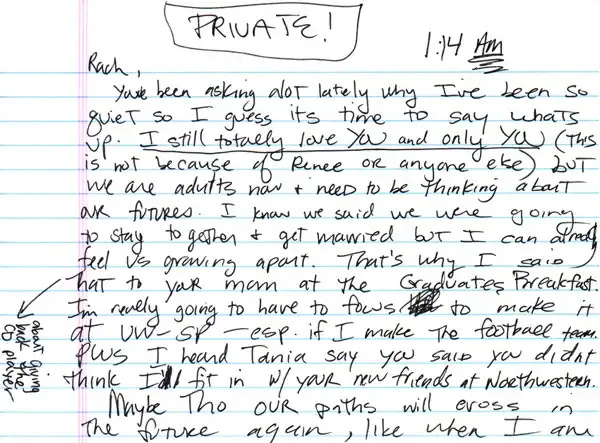 PRIVATE!
1:14 AM
Rach,
You've been asking alot lately why I've been so
quiet so I guess its time to say whats
up. I still totally love YOU and only YOU (This
is not because of Renee or anyone else) but
we are adults now + need to be thinking about
our futures. I know we said we were going
to stay together + get married but I can already
feel us growing apart. That's why I said
that to your mom at the Graduates Breakfast.
about giving
back the
CD player
I'm really going to have to focus to make it
at UW-SP - esp. if I make the football team.
PLUS I heard Tania say you said you didnt
think I'll fit in w/ your new friends at Northwestern.
Maybe Tho our paths will cross in
the future again, like when I am